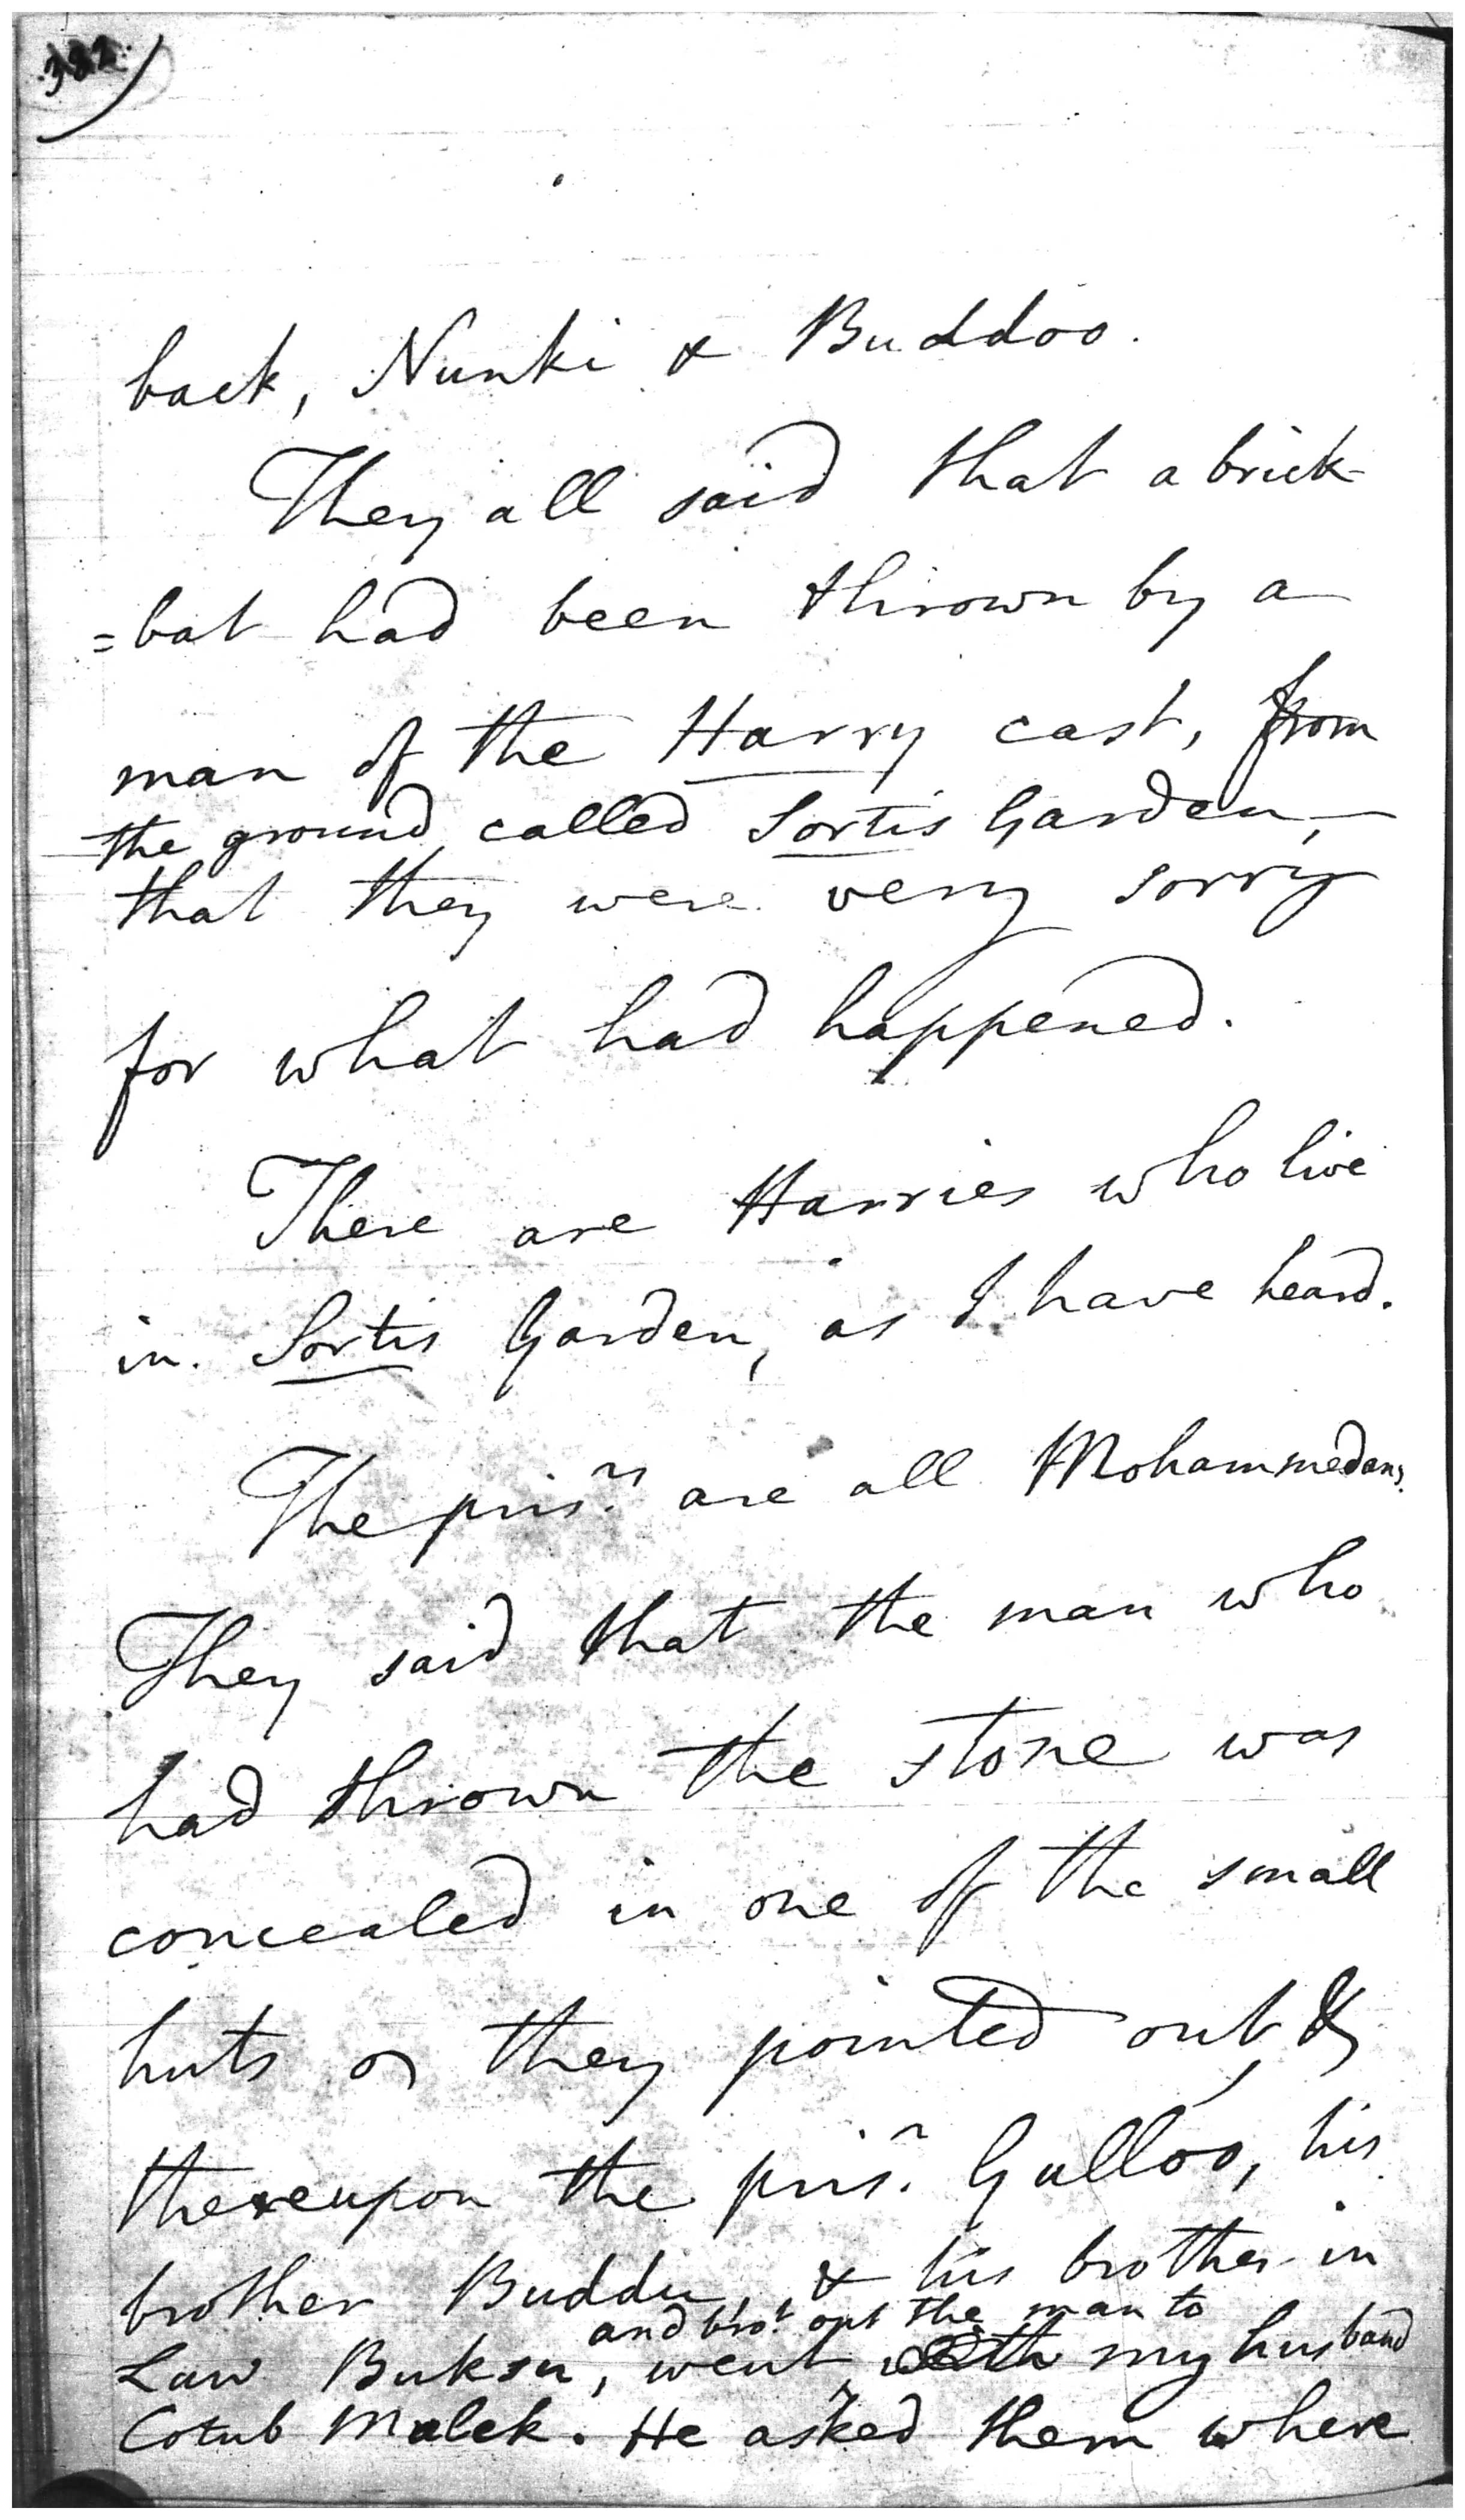 382
back, Nunki & Buddoo.
They all said that a brick-
=bat had been thrown by a
man of the Harry cast, from
the ground called Sortis Garden,
that they were very sorry
for what had happened.
There are Harries who live
in Sortis Garden, as I have heard.
The pris.rs are all Mohammedans.
They said that the man who
had thrown the stone was
concealed in one of the small
huts or they pointed out &
thereupon the pris.r Gulloo, his
brother Buddu, & his brother in
and bro.t out the man to
Law Buksu, went my husband
Cotub Malek. He asked them where